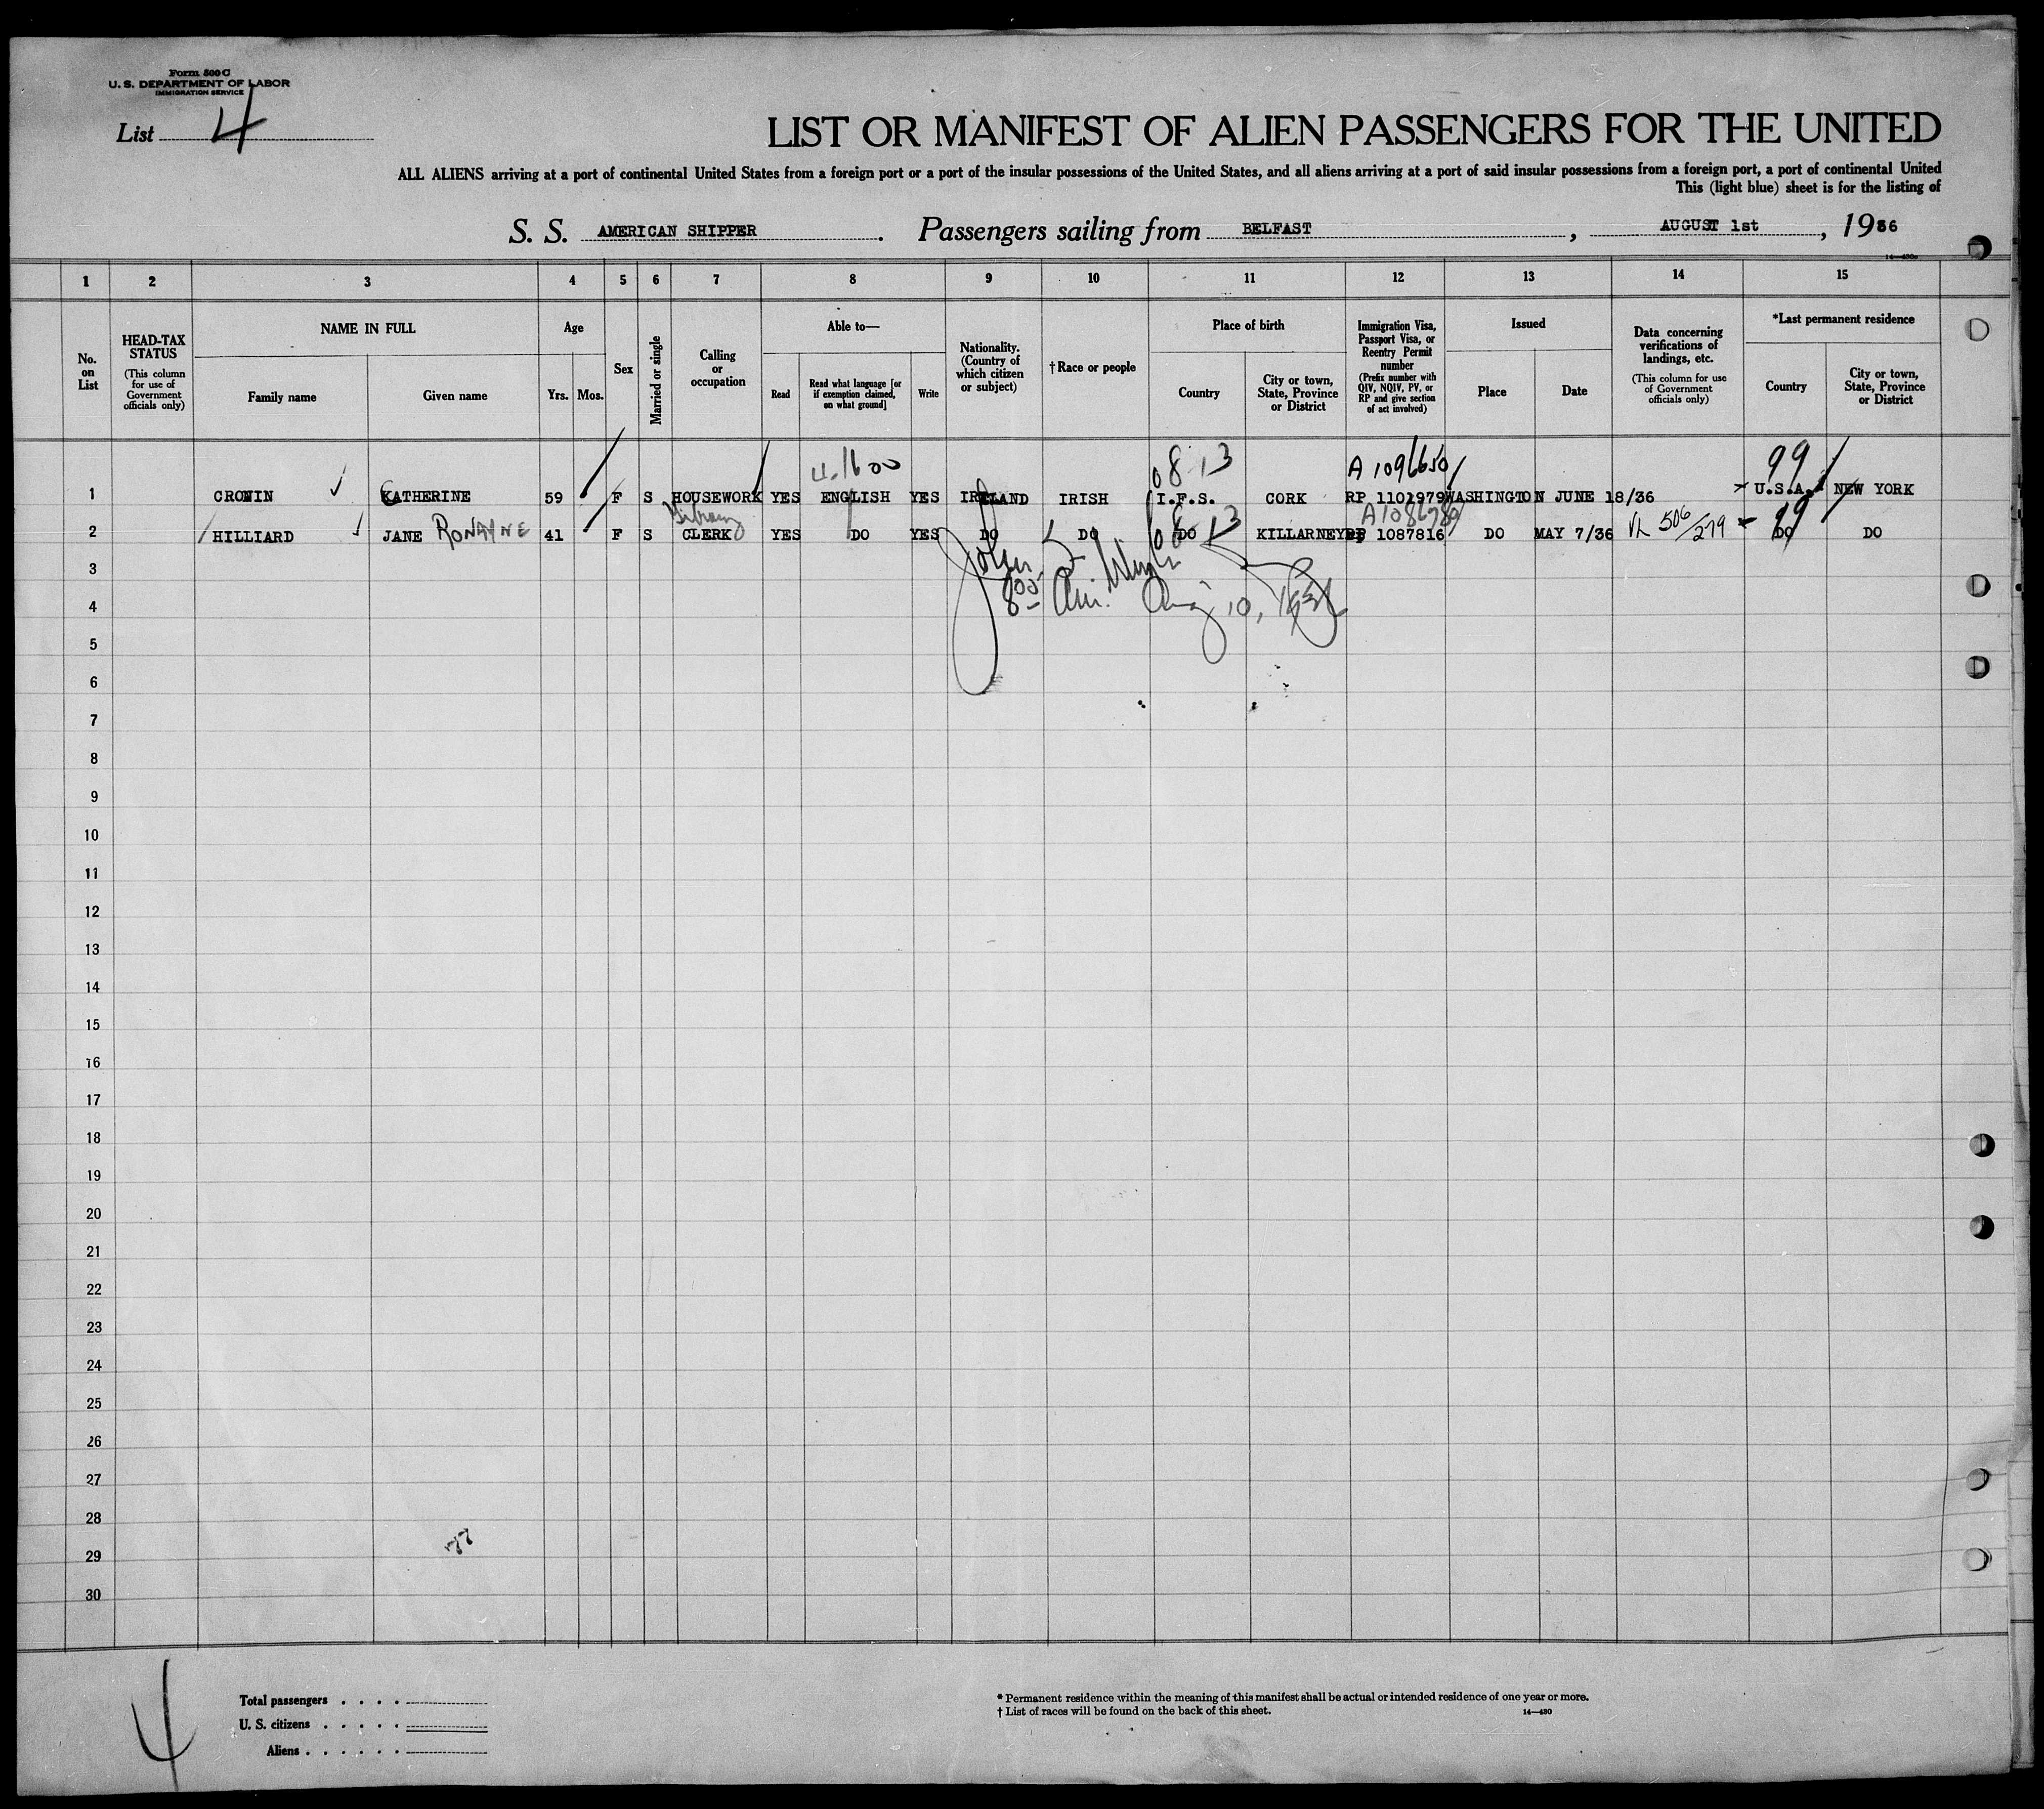 Form 500 C
U. S. DEPARTMENT OF LABOR
IMMIGRATION SERVICE
List 4
LIST OR MANIFEST OF ALIEN PASSENGERS FOR THE UNITED
ALL ALIENS arriving at a port of continental United States from a foreign port or a port of the insular possessions of the United States, and all aliens arriving at a port of said insular possessions from a foreign port, a port of continental United
This (light blue) sheet is for the listing of
S. S. AMERICAN SHIPPER. Passengers sailing from BELFAST, AUGUST 1st, 1936
1 2 3 4 5 6 7 8 9 10 11 12 13 14 15
No. on List
HEAD-TAX STATUS
(This column for use of Government officials only)
NAME IN FULL
Family name
Given name
Age
Yrs. Mos.
Sex
Married or single
Calling or occupation
Able to—
Read
Read what language [or if exemption claimed, on what ground]
Write
Nationality. (Country of which citizen or subject)
† Race or people
Place of birth
Country
City or town, State, Province or District
Immigration Visa, Passport Visa, or Reentry Permit number
(Prefix number with QIV, NQIV, PV, or RP and give section of act involved)
Issued
Place
Date
Data concerning verifications of landings, etc.
(This column for use of Government officials only)
*Last permanent residence
Country
City or town, State, Province or District
08-13 A 1096650 99
1 CRONIN KATHERINE 59 F S HOUSEWORK YES ENGLISH YES IRELAND IRISH I.F.S. CORK RP 1101979 WASHINGTON JUNE 18/36 U.S.A. NEW YORK
Library 08-13 A1086789 99
2 HILLIARD JANE RONAYNE 41 F S CLERK YES DO YES DO DO DO KILLARNEY RP 1087816 DO MAY 7/36 VL 506/279 DO DO
3
8 00 Am. Aug 10, 1936
4
5
6
7
8
9
10
11
12
13
14
15
16
17
18
19
20
21
22
23
24
25
26
27
28
29
30
4
Total passengers . . . .
U. S. citizens . . . . .
Aliens . . . . . .
* Permanent residence within the meaning of this manifest shall be actual or intended residence of one year or more.
† List of races will be found on the back of this sheet.
14—430